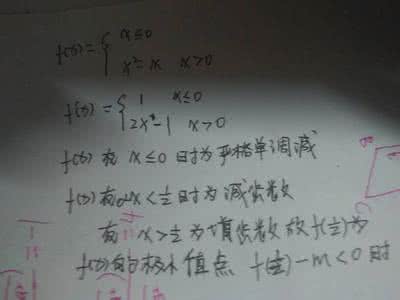 f(x)={ x≤0
x²-x x>0
f(x)={ 1 x≤0
2x-1 x>0
f(x) 在 x≤0 时为严格单调减
f(x) 在 0<x<1/2 时为减函数
在 x>1/2 为增函数 故 f(1/2) 为
f(x) 的极小值点 f(1/2)-m<0 时